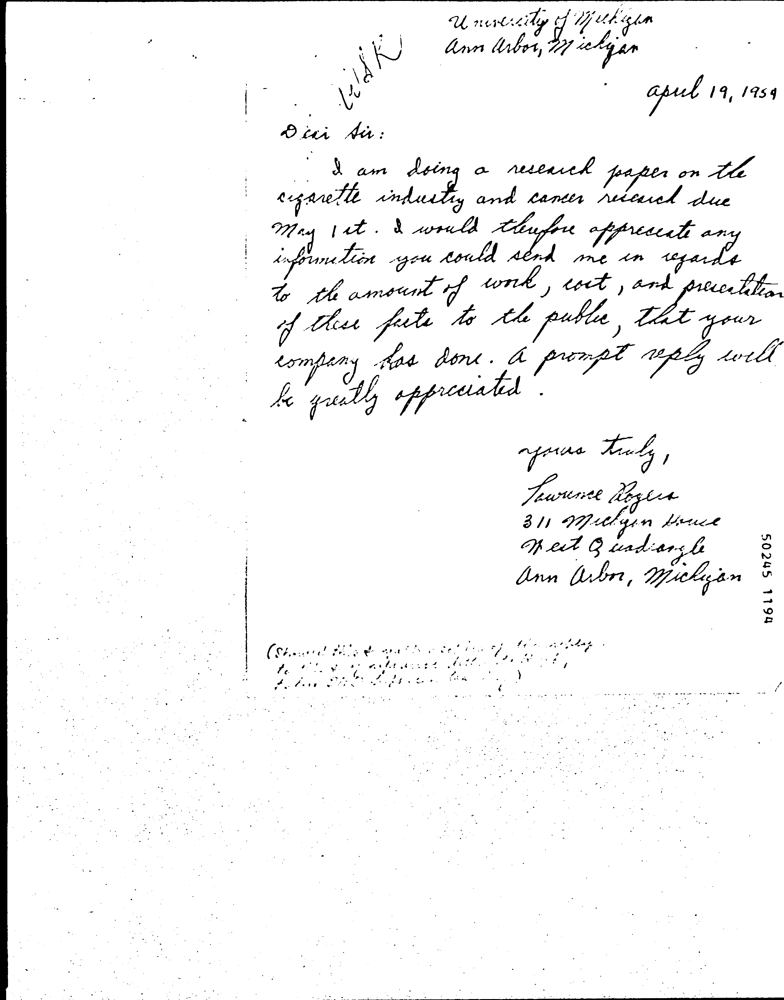 University of Michigan
Ann Arbor, Michigan
April 19, 1959
Dear Sir:
I am doing a research paper on the
cigarette industry and cancer research due
May 1st. I would therefore appreciate any
information you could send me in regards
to the amount of work, cost, and presentation
of these facts to the public, that your
company has done. A prompt reply will
be greatly appreciated.
Yours truly,
Lawrence Rogers
311 Michigan House
West Quadrangle
Ann Arbor, Michigan
50245 1194
(Showed this
to